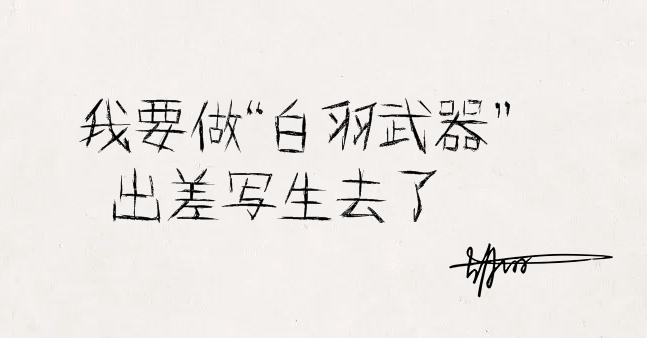 我要做“白羽武器”
出差写生去了